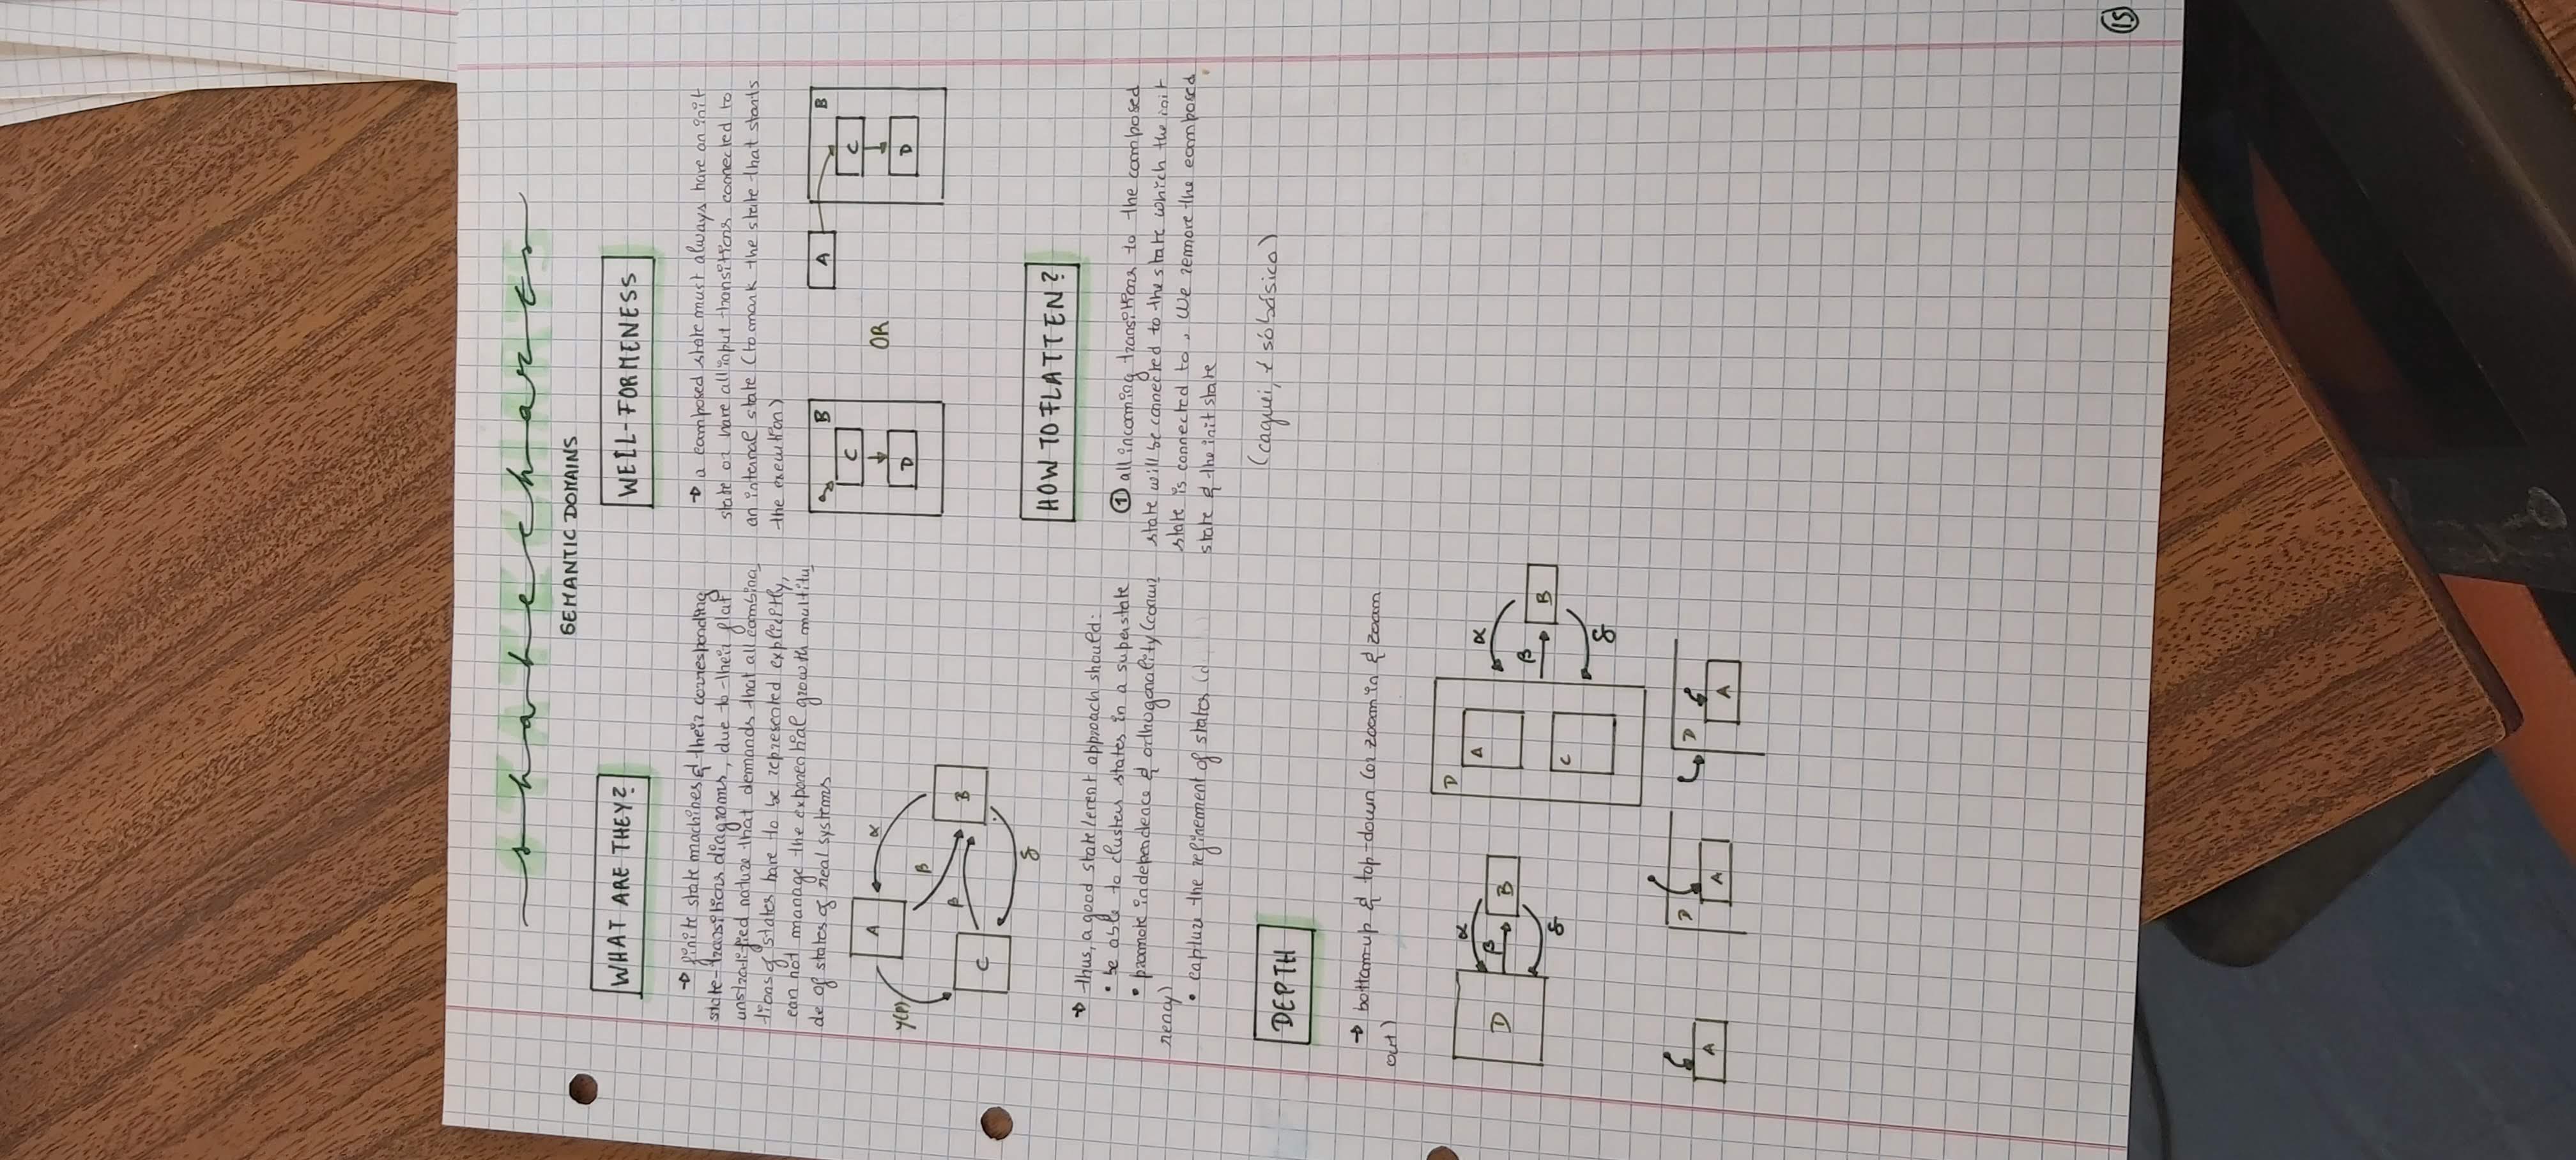 statecharts
SEMANTIC DOMAINS
WHAT ARE THEY?
→ finite state machines & their corresponding
state-transitions diagrams, due to their flat
unstratified nature that demands that all combina
tions of states have to be represented explicitly,
can not manage the exponential growth multitu
de of states of real systems
A
B
C
α
β
β
γ(P)
δ
→ thus, a good state/event approach should:
• be able to cluster states in a superstate
• promote independence & orthogonality (concur
rency)
• capture the refinement of states
DEPTH
→ bottom-up & top-down (or zoom in & zoom
out)
D
α
β
B
δ
D
A
C
α
β
B
δ
A
D
A
D
A
WELL-FORMENESS
→ a composed state must always have an init
state or have all input transitions connected to
an internal state (to mark the state that starts
the execution)
B
C
D
OR
A
B
C
D
HOW TO FLATTEN?
① all incoming transitions to the composed
state will be connected to the state which the init
state is connected to. We remove the composed
state & the init state
(caguei, é só básico)
15